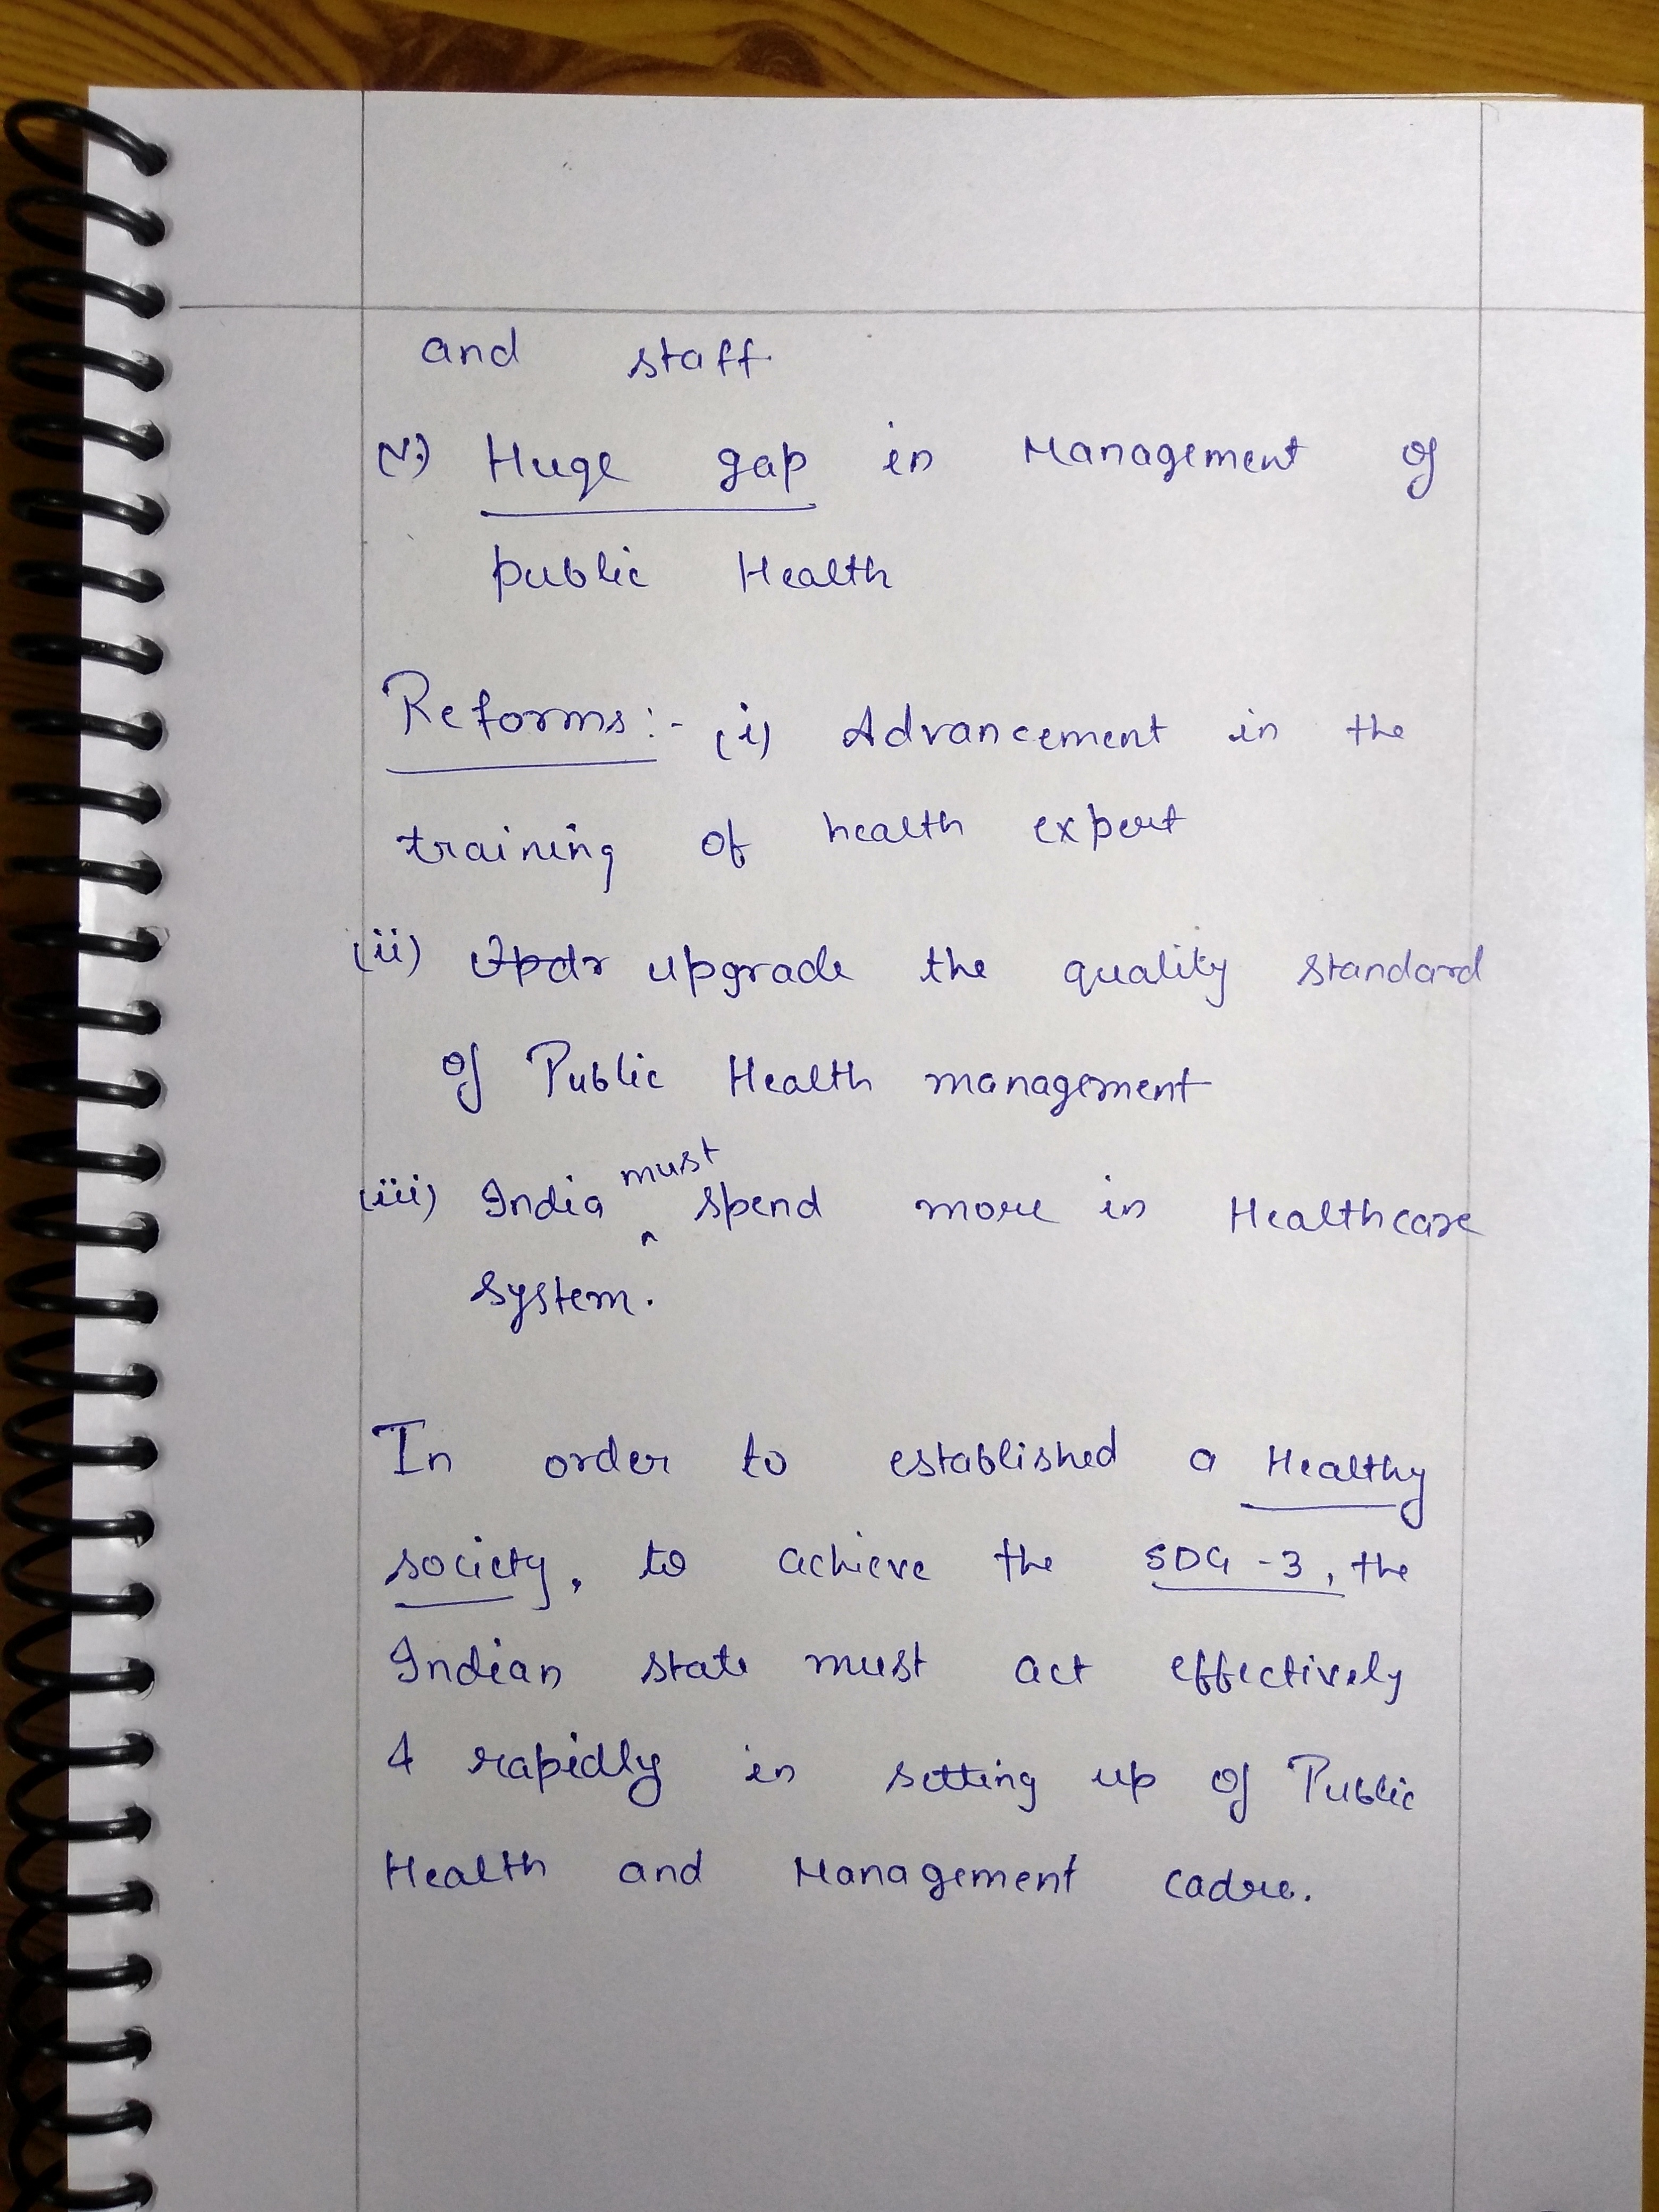 and staff.
(v) Huge gap in Management of
public Health
Reforms:- (i) Advancement in the
training of health expert
(ii) upgrade the quality standard
of Public Health management
(iii) India must spend more in Healthcare
system.
In order to established a Healthy
society, to achieve the SDG-3, the
Indian state must act effectively
& rapidly in setting up of Public
Health and Management cadre.